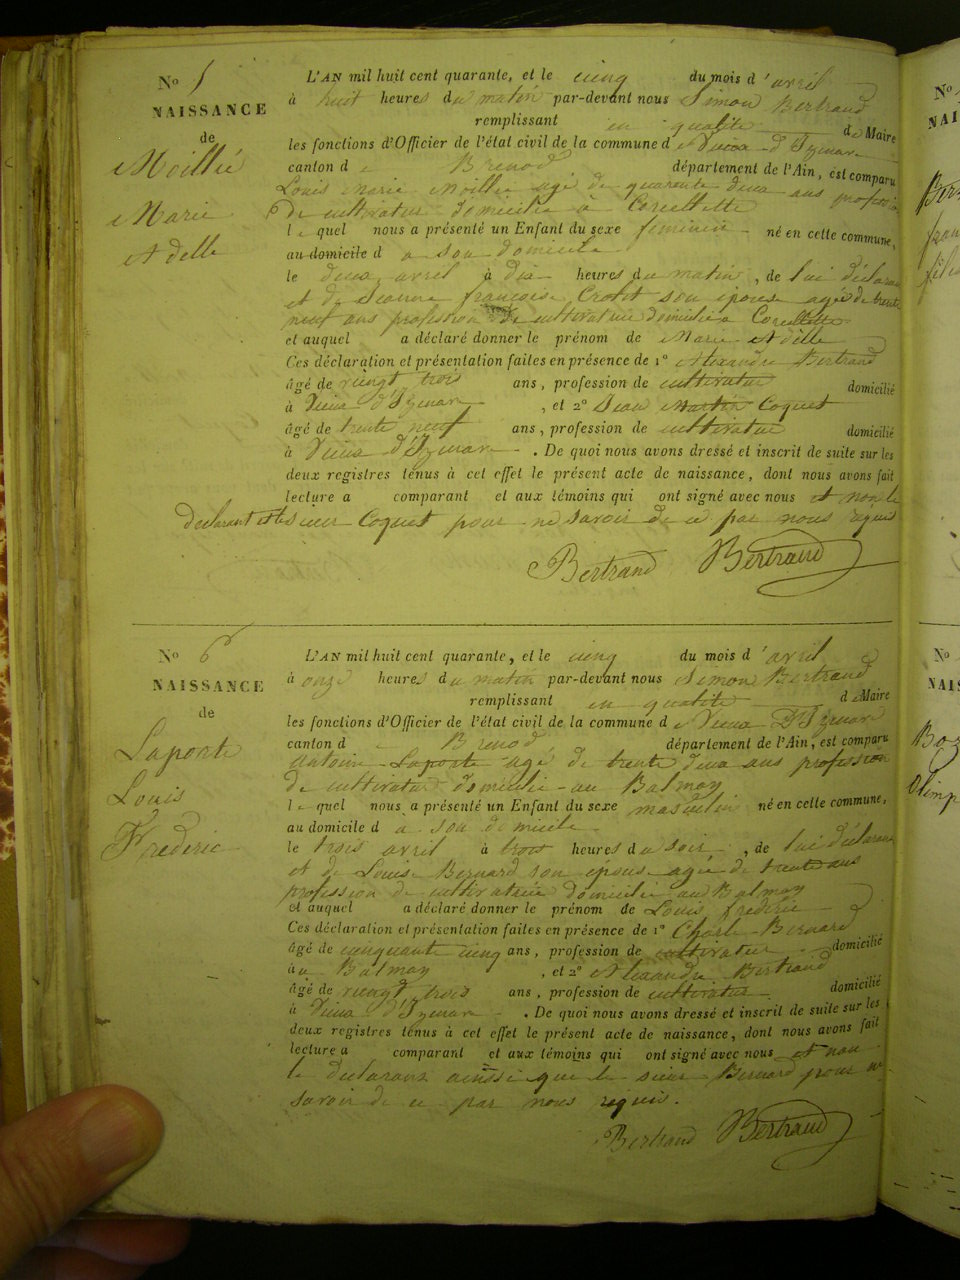 N° 5
NAISSANCE
de
Moillié
Marie
Adelle
L'AN mil huit cent quarante, et le cinq du mois d'avril
à huit heures du matin par-devant nous Simon Bertrand
remplissant en qualité de Maire
les fonctions d'Officier de l'état civil de la commune de Vieux d'Izenave
canton de Brenod département de l'Ain, est comparu
Louis Marie Moillié agé de quarente deux ans profession
de cultivateur domicilié à Corcellette
lequel nous a présenté un Enfant du sexe feminin né en cette commune,
au domicile d à son domicile
le deux avril à dix heures du matin, de lui déclarant
et de françoise son épouse agée de trente
neuf ans profession de cultivatrice domiciliée a Corcellette
et auquel a déclaré donner le prénom de Marie Adelle
Ces déclaration et présentation faites en présence de 1° Alexandre Bertrand
âgé de vingt trois ans, profession de cultivateur domicilié
à Vieux d'Izenave, et 2° Jean Martin Coquet
âgé de trente neuf ans, profession de cultivateur domicilié
à Vieux d'Izenave. De quoi nous avons dressé et inscrit de suite sur les
deux registres tenus à cet effet le présent acte de naissance, dont nous avons fait
lecture a comparant et aux témoins qui ont signé avec nous et non le
declarant et le sieur Coquet pour ne savoir de ce par nous requis
Bertrand Bertrand
N° 6
NAISSANCE
de
Laporte
Louis
Frederic
L'AN mil huit cent quarante, et le cinq du mois d'avril
à onze heures du matin par-devant nous Simon Bertrand
remplissant en qualité de Maire
les fonctions d'Officier de l'état civil de la commune de Vieux D'Izenave
canton de Brenod département de l'Ain, est comparu
Antoine Laporte agé de trente deux ans profession
de cultivateur domicilié au Balmay
lequel nous a présenté un Enfant du sexe masculin né en cette commune,
au domicile d à son domicile
le trois avril à trois heures du soir, de lui déclarant
et de Louise Bernard son épouse agée de trente ans
profession de cultivatrice domicilié au Balmay
et auquel a déclaré donner le prénom de Louis frederic
Ces déclaration et présentation faites en présence de 1° Charle Bernard
âgé de cinquante cinq ans, profession de cultivateur domicilié
au Balmay, et 2° Alexandre Bertrand
âgé de vingt trois ans, profession de cultivateur domicilié
à Vieux d'Izenave. De quoi nous avons dressé et inscrit de suite sur les
deux registres tenus à cet effet le présent acte de naissance, dont nous avons fait
lecture a comparant et aux témoins qui ont signé avec nous et non
le declarant ainssi que le sieur Bernard pour ne
savoir de ce par nous requis.
Bertrand Bertrand